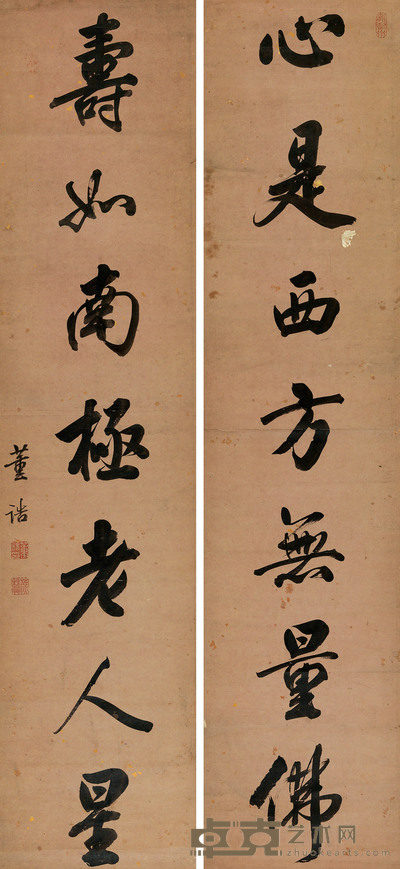 心是西方無量佛
壽如南極老人星
董誥
卓克艺术网
zhuokearts.com